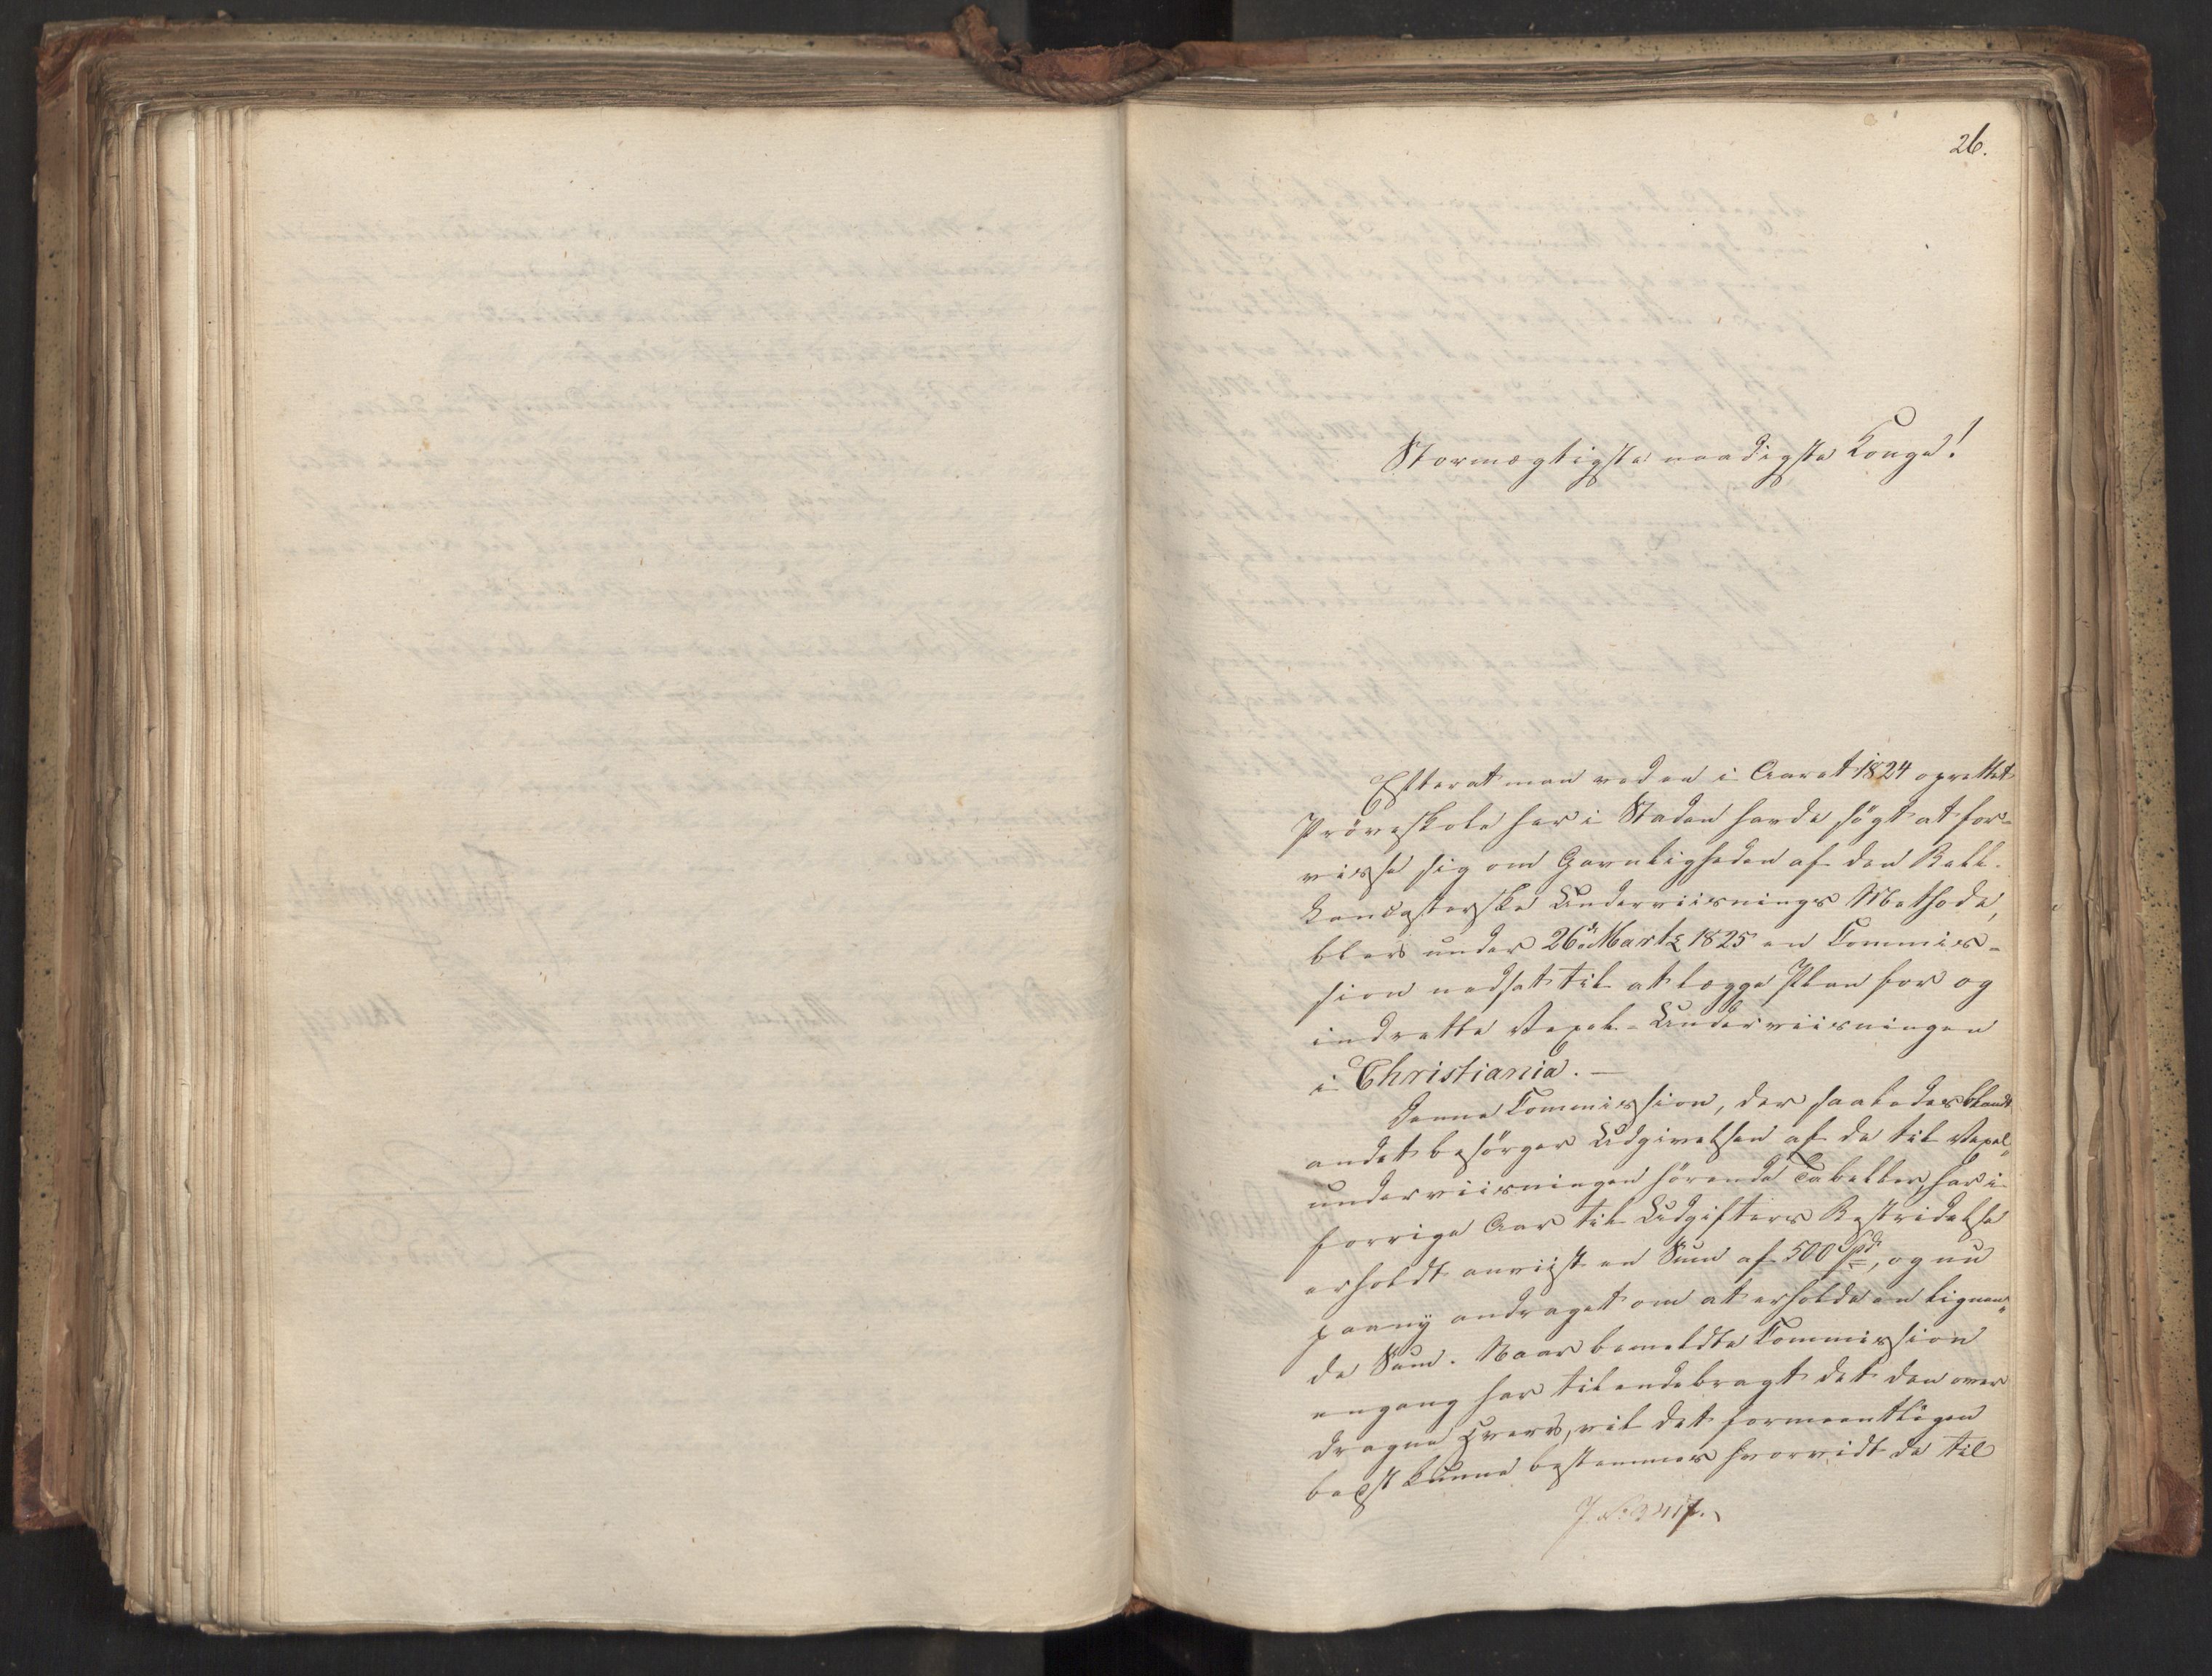 26.
Stormægtigste naadigste Konge!
Efterat man ved en i Aaret 1824 oprettet
Prøveskole her i Staden havde søgt at for-
visse sig om Gavnligheden af den Bell-
Lancasterske Underviisnings Methode,
blev under 26de Marts 1825 en Commis-
sion nedsat til at lægge Plan for og
indrette Vexel-Underviisningen
i Christiania. —
Denne Commission, der saaledes blandt
andet besørger Udgivelsen af de til Vexel-
underviisningen hørende Tabeller, har i
forrige Aar til Udgifters Bestridelse
erholdt anviist en Sum af 500 Spd, og nu
paany andraget om at erholde en lignen-
de Sum. Naar bemeldte Commission
engang har tilendebragt det den over
dragne Hverv, vil det formeentligen
bedst kunne bestemmes hvorvidt de til
J. No 3417.